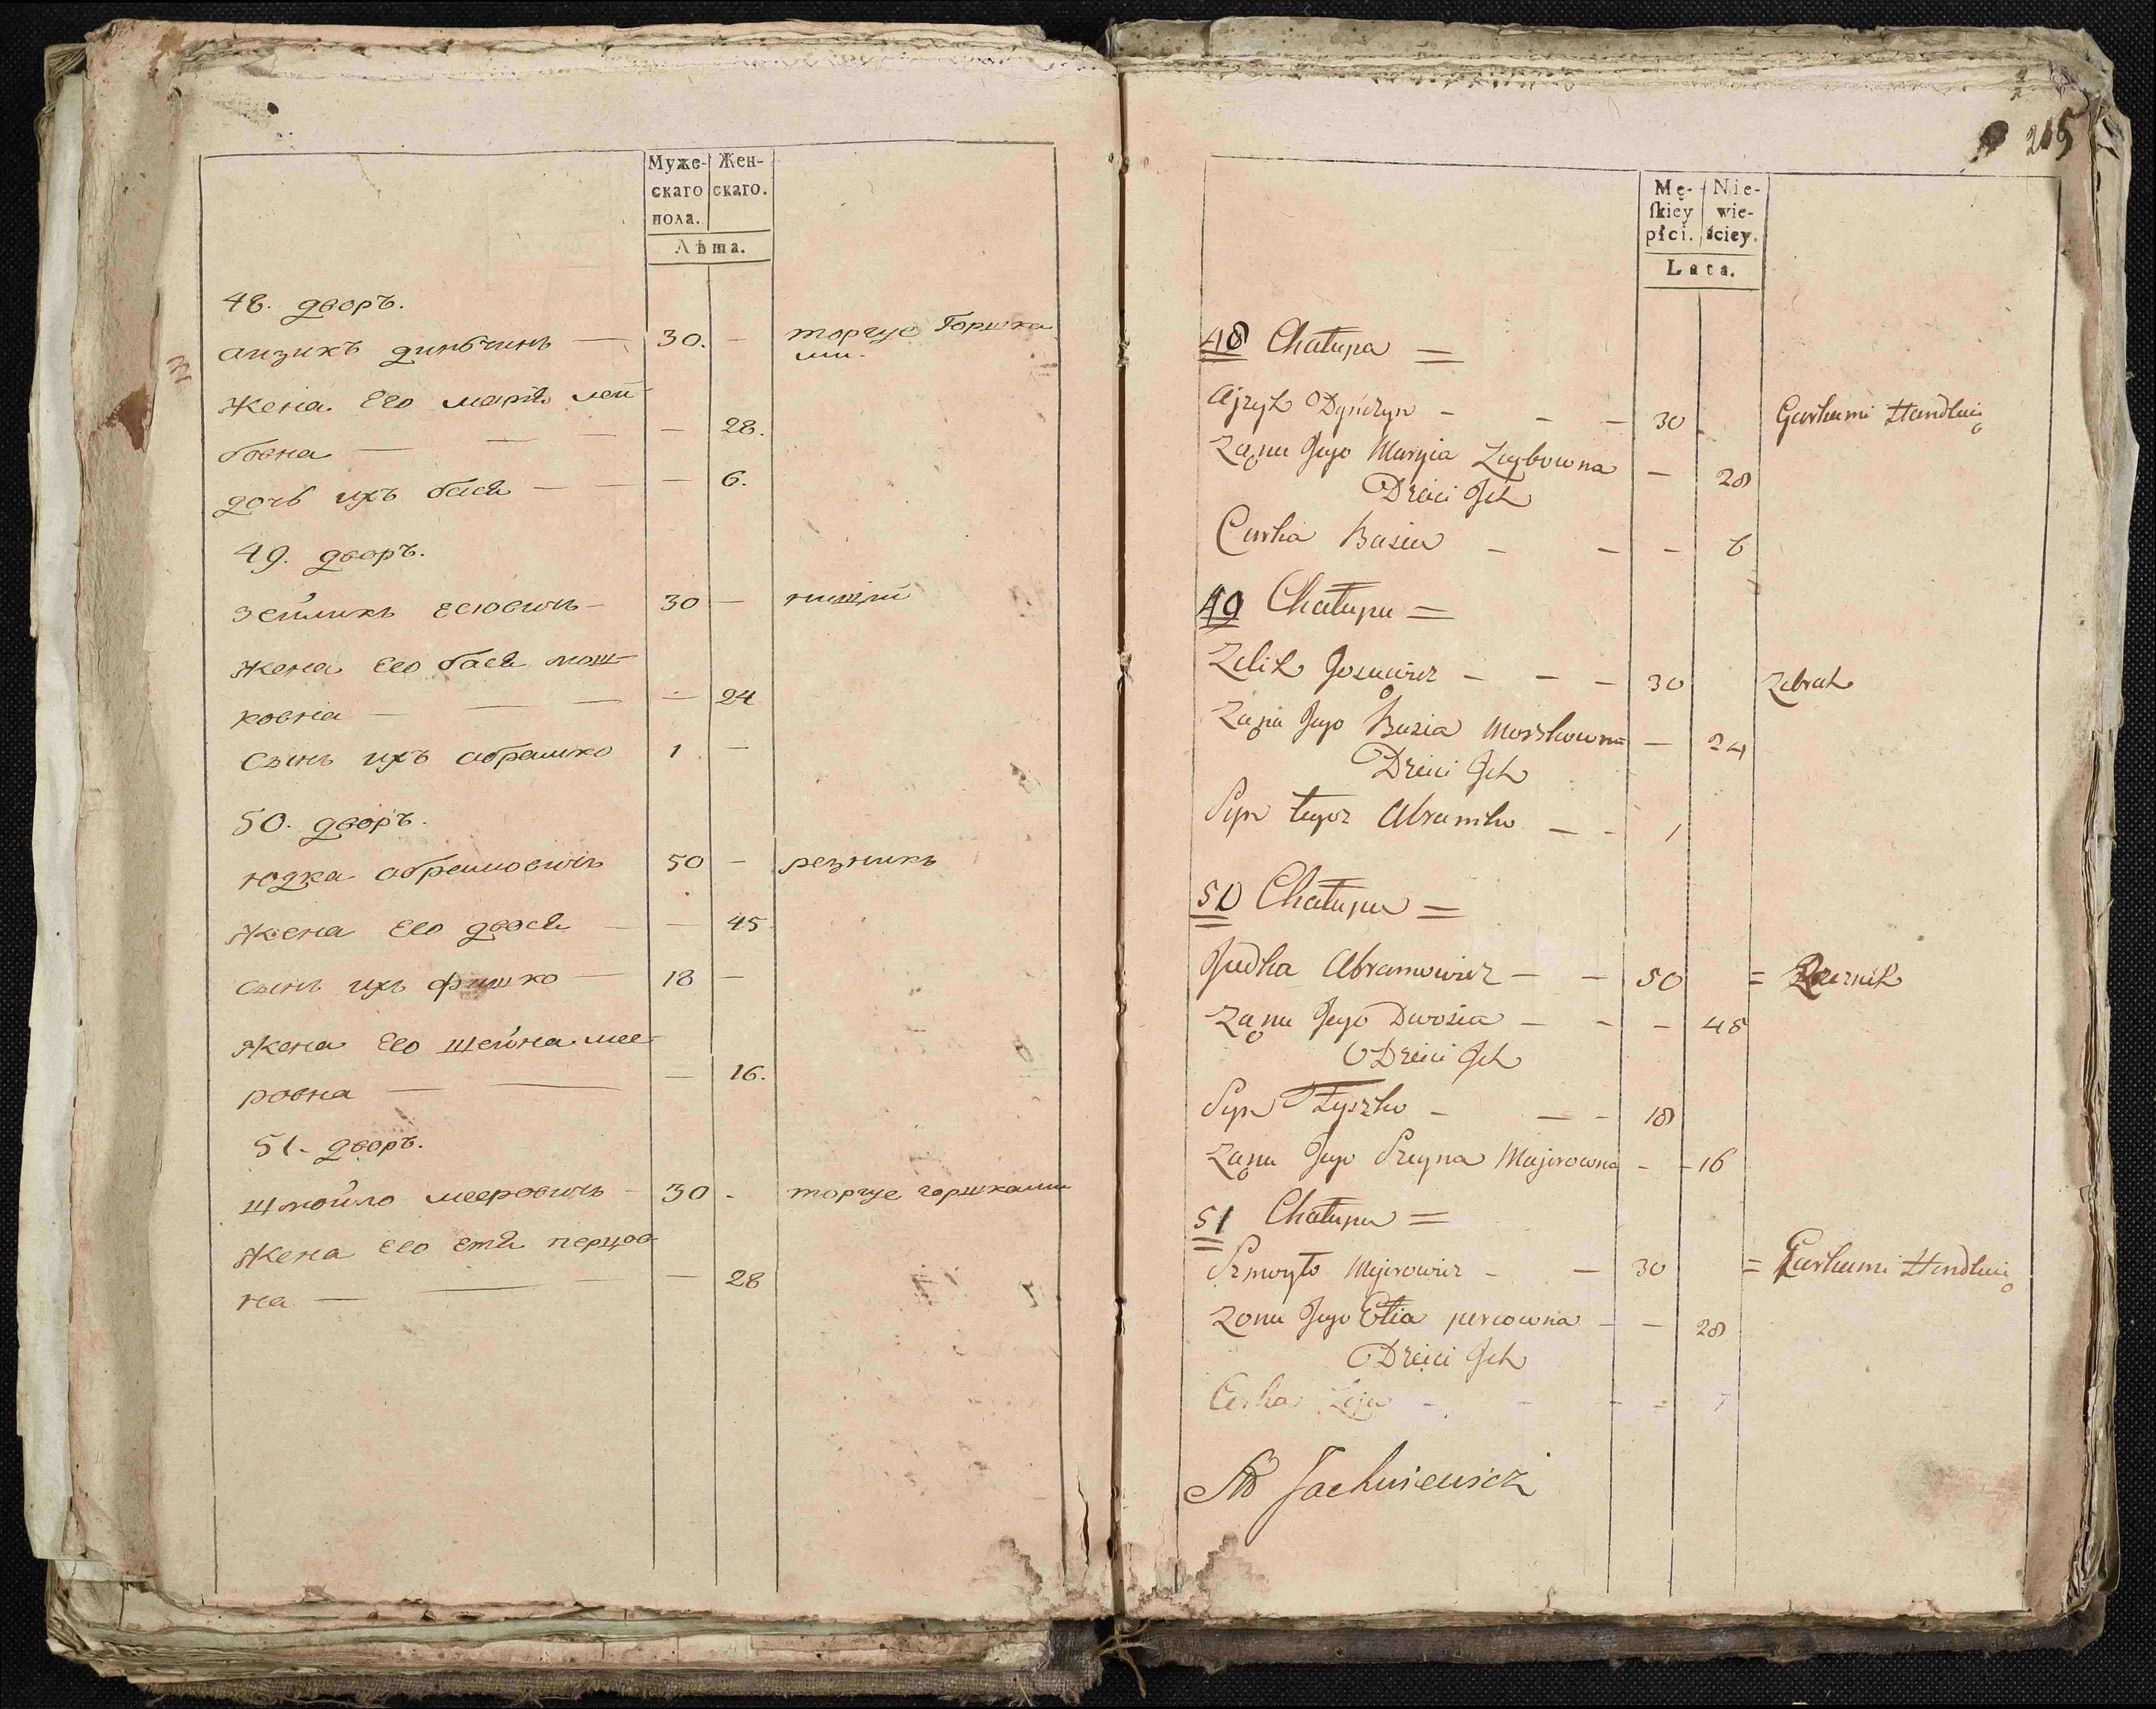 Муже-
скаго
пола.
Жен-
скаго.
Лѣта.
48. дворъ.
аизикъ диньчинъ — 30. — торгуе Горшка
ми.
Жена Его маріѣ лей
бовна — — — — 28.
дочь ихъ басѣ — — — 6.
49. дворъ.
Зейликъ есювичь — 30 — нищій
Жена Его басѣ мош-
ковна — — — — 24
Сынъ ихъ абрамко 1 —
50. дворъ.
юдка абрамовичь 50 — резникъ
Жена Его двосѣ — — 45
сынъ ихъ фишко — 18 —
Жена Его шейна мее
ровна — — — 16.
51. дворъ.
шмойло мееровичь — 30 - торгуе горшками
Жена Его етѣ перцов
на — — — — 28
215
Mę-
skiey
płci.
Nie-
wie-
ściey.
Lata.
48 Chałupa =
Ajzyk Dynczyn — — — 30 Garkami Handlui
Zona Jego Maryia Leybowna — 28
Dzieci Jch
Curka Basia — — — 6
49 Chałupa =
Zelik Josiewicz — — — 30 Zebrak
Zona Jego Basia Moszkowna — 24
Dzieci Jch
Syn tegoz Abramko — — 1
50 Chałupa =
Judka Abramowicz — — 50 = Rzeznik
Zona Jego Dwosia — — — 45
Dzieci Jch
Syn Fyszko — — — 18
Zona Jego Szeyna Majerowna — — 16
51 Chałupa =
Szmoyło Mejerowicz — — 30 = Garkami Handlui
Zona Jego Etia percowna — — 28
Dzieci Jch
Curka Leja — — — — 7